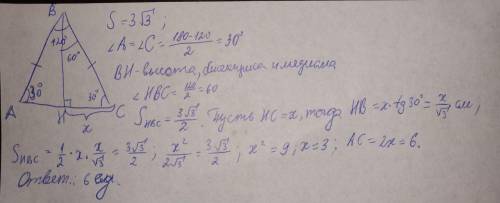 B
120°
60°
A
30°
30°
C
H
x
S = 3√3 ;
∠A = ∠C = (180-120)/2 = 30°
BH - высота, биссектриса и медиана
∠HBC = 120/2 = 60
S_HBC = 3√3/2. Пусть HC = x, тогда HB = x · tg 30° = x/√3 см,
S_HBC = 1/2 · x · x/√3 = 3√3/2 ; x²/2√3 = 3√3/2 ; x² = 9 ; x = 3 ; AC = 2x = 6.
Ответ: 6 см.